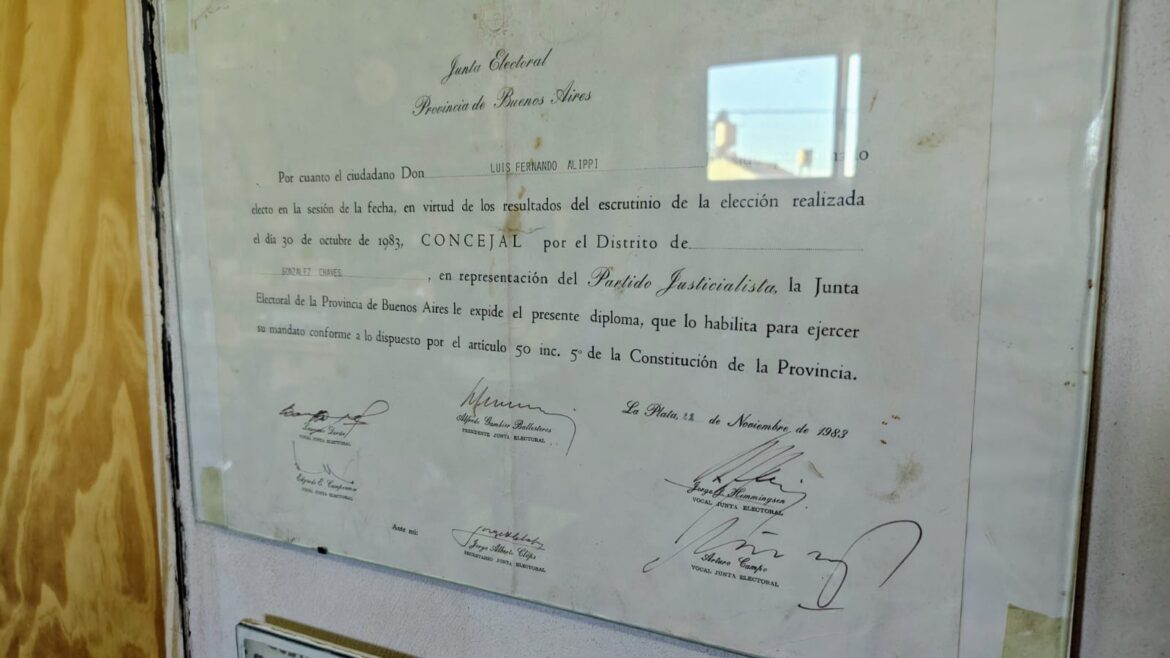 Junta Electoral
Provincia de Buenos Aires
Por cuanto el ciudadano Don LUIS FERNANDO ALIPPI
electo en la sesión de la fecha, en virtud de los resultados del escrutinio de la elección realizada
el día 30 de octubre de 1983, CONCEJAL por el Distrito de
GONZALEZ CHAVES, en representación del Partido Justicialista, la Junta
Electoral de la Provincia de Buenos Aires le expide el presente diploma, que lo habilita para ejercer
su mandato conforme a lo dispuesto por el artículo 50 inc. 5º de la Constitución de la Provincia.
La Plata, de Noviembre de 1983
Alfredo Gambier Ballesteros
PRESIDENTE JUNTA ELECTORAL
VOCAL JUNTA ELECTORAL
Edgardo E.
VOCAL JUNTA ELECTORAL
Jorge J. Hemmingsen
VOCAL JUNTA ELECTORAL
Ante mí:
Jorge Alberto
SECRETARIO JUNTA ELECTORAL
Arturo Campo
VOCAL JUNTA ELECTORAL